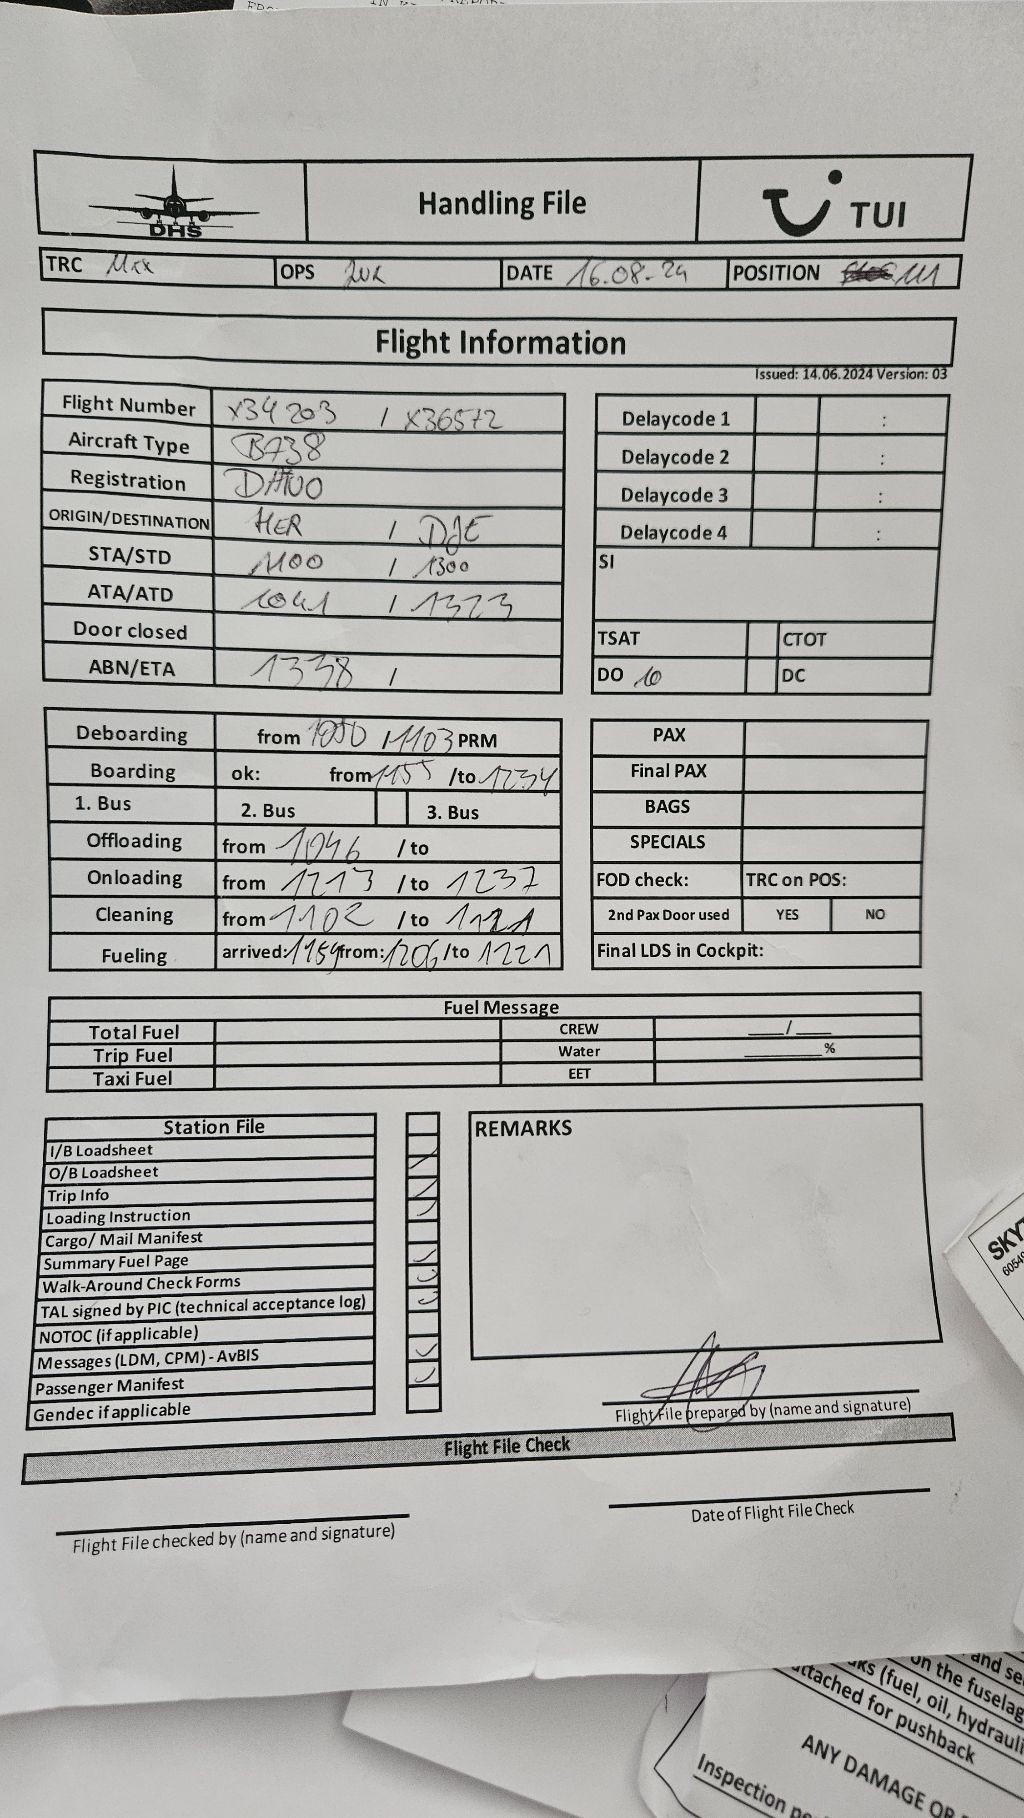 DHS
Handling File
TUI
TRC
OPS
DATE 16.08.24
POSITION 111
Flight Information
Issued: 14.06.2024 Version: 03
Flight Number X34203 / X36572
Aircraft Type B738
Registration
ORIGIN/DESTINATION HER / DJE
STA/STD 1100 / 1300
ATA/ATD 1041 / 1323
Door closed
ABN/ETA 1338 /
Delaycode 1 :
Delaycode 2 :
Delaycode 3 :
Delaycode 4 :
SI
TSAT CTOT
DO 10 DC
Deboarding from 1050 / 1103 PRM
Boarding ok: from 1155 /to 1234
1. Bus 2. Bus 3. Bus
Offloading from 1046 / to
Onloading from 1213 / to 1237
Cleaning from 1102 / to 1121
Fueling arrived: 1159 from: 1206 /to 1221
PAX
Final PAX
BAGS
SPECIALS
FOD check: TRC on POS:
2nd Pax Door used YES NO
Final LDS in Cockpit:
Fuel Message
Total Fuel CREW ___/___
Trip Fuel Water ______%
Taxi Fuel EET
Station File
I/B Loadsheet
O/B Loadsheet
Trip Info
Loading Instruction
Cargo/ Mail Manifest
Summary Fuel Page
Walk-Around Check Forms
TAL signed by PIC (technical acceptance log)
NOTOC (if applicable)
Messages (LDM, CPM) - AvBIS
Passenger Manifest
Gendec if applicable
REMARKS
Flight File prepared by (name and signature)
Flight File Check
Flight File checked by (name and signature)
Date of Flight File Check
on the fuselag
(fuel, oil, hydrauli
attached for pushback
ANY DAMAGE OR
Inspection